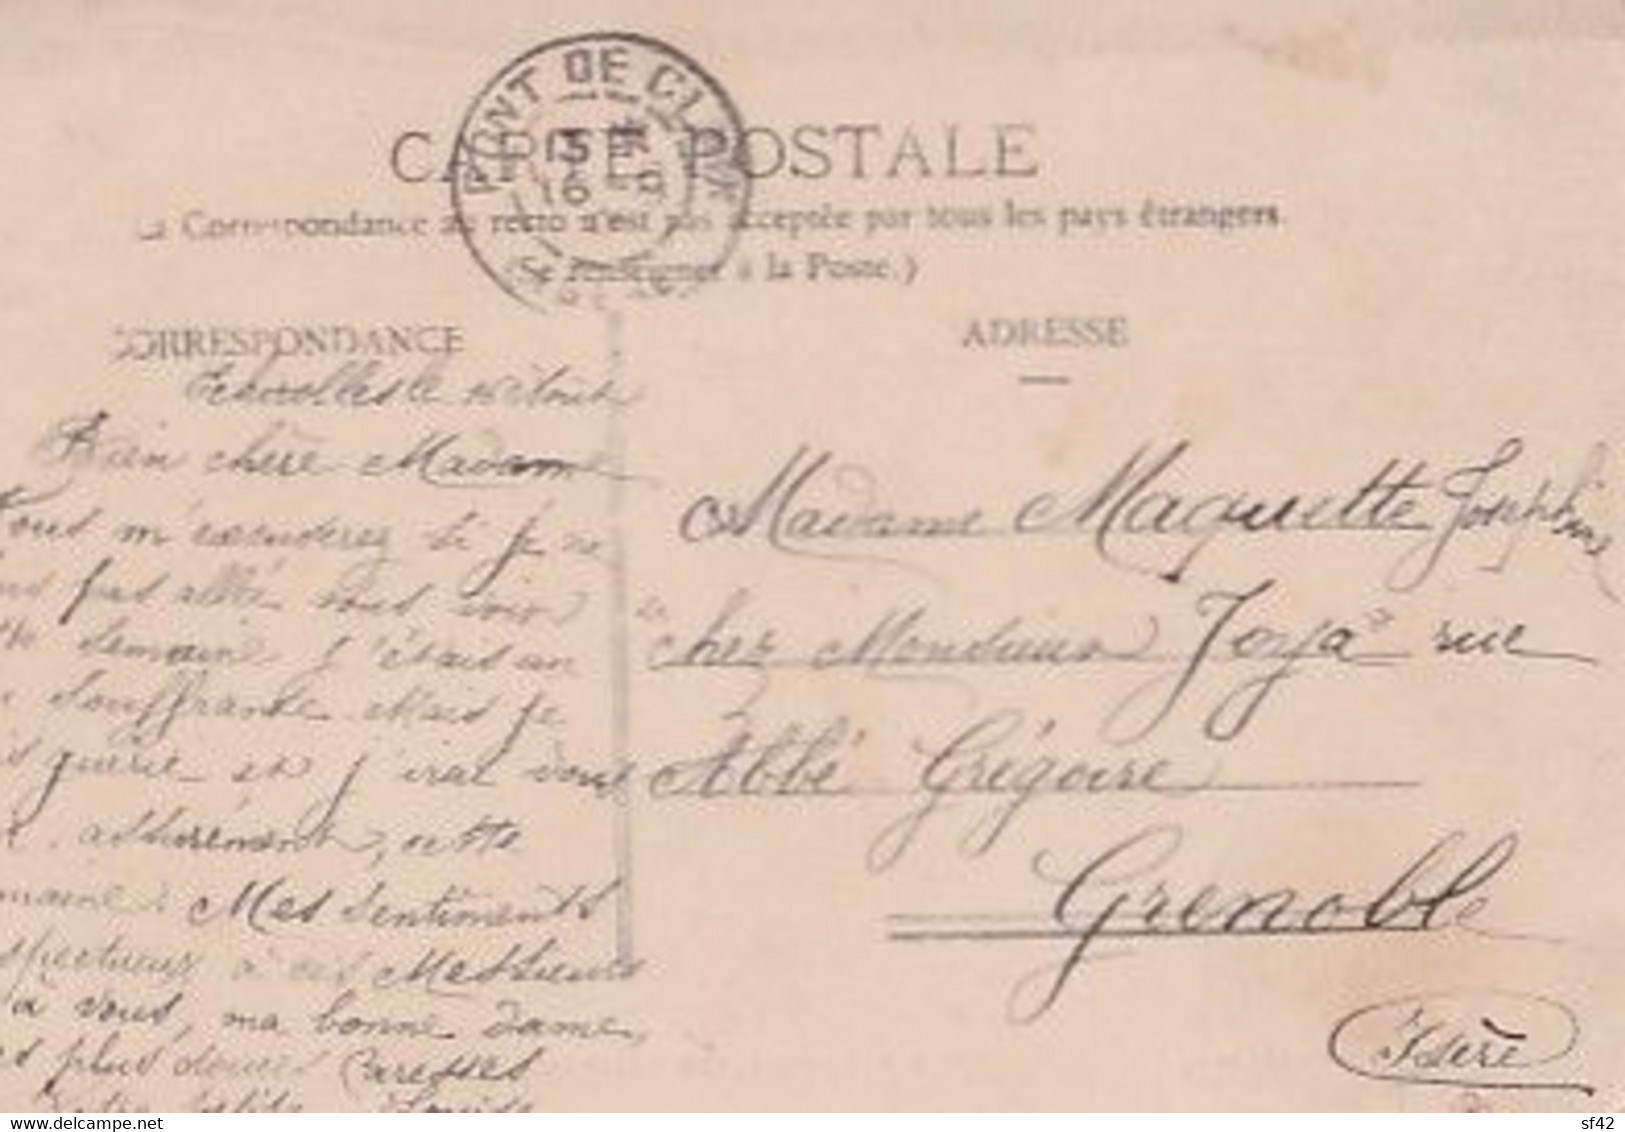 PONT DE CLAIX
15
16
CARTE POSTALE
La Correspondance au recto n'est pas acceptée par tous les pays étrangers
(Se renseigner à la Poste.)
CORRESPONDANCE
ADRESSE
Echirolles le
Bien chère Madame
Vous m'excuserez si je ne
pas allée vous voir
semaine j'étais un
souffrante Mais je
guérie et j'irai vous
, assurément, cette
Mes sentiments
à ces Messieurs
à vous, ma bonne dame,
plus douces Caresses
petite Louise
Madame Maquette Joséphine
chez Monsieur Joya rue
Abbé Grégoire
Grenoble
Isère
www.delcampe.net
sf42